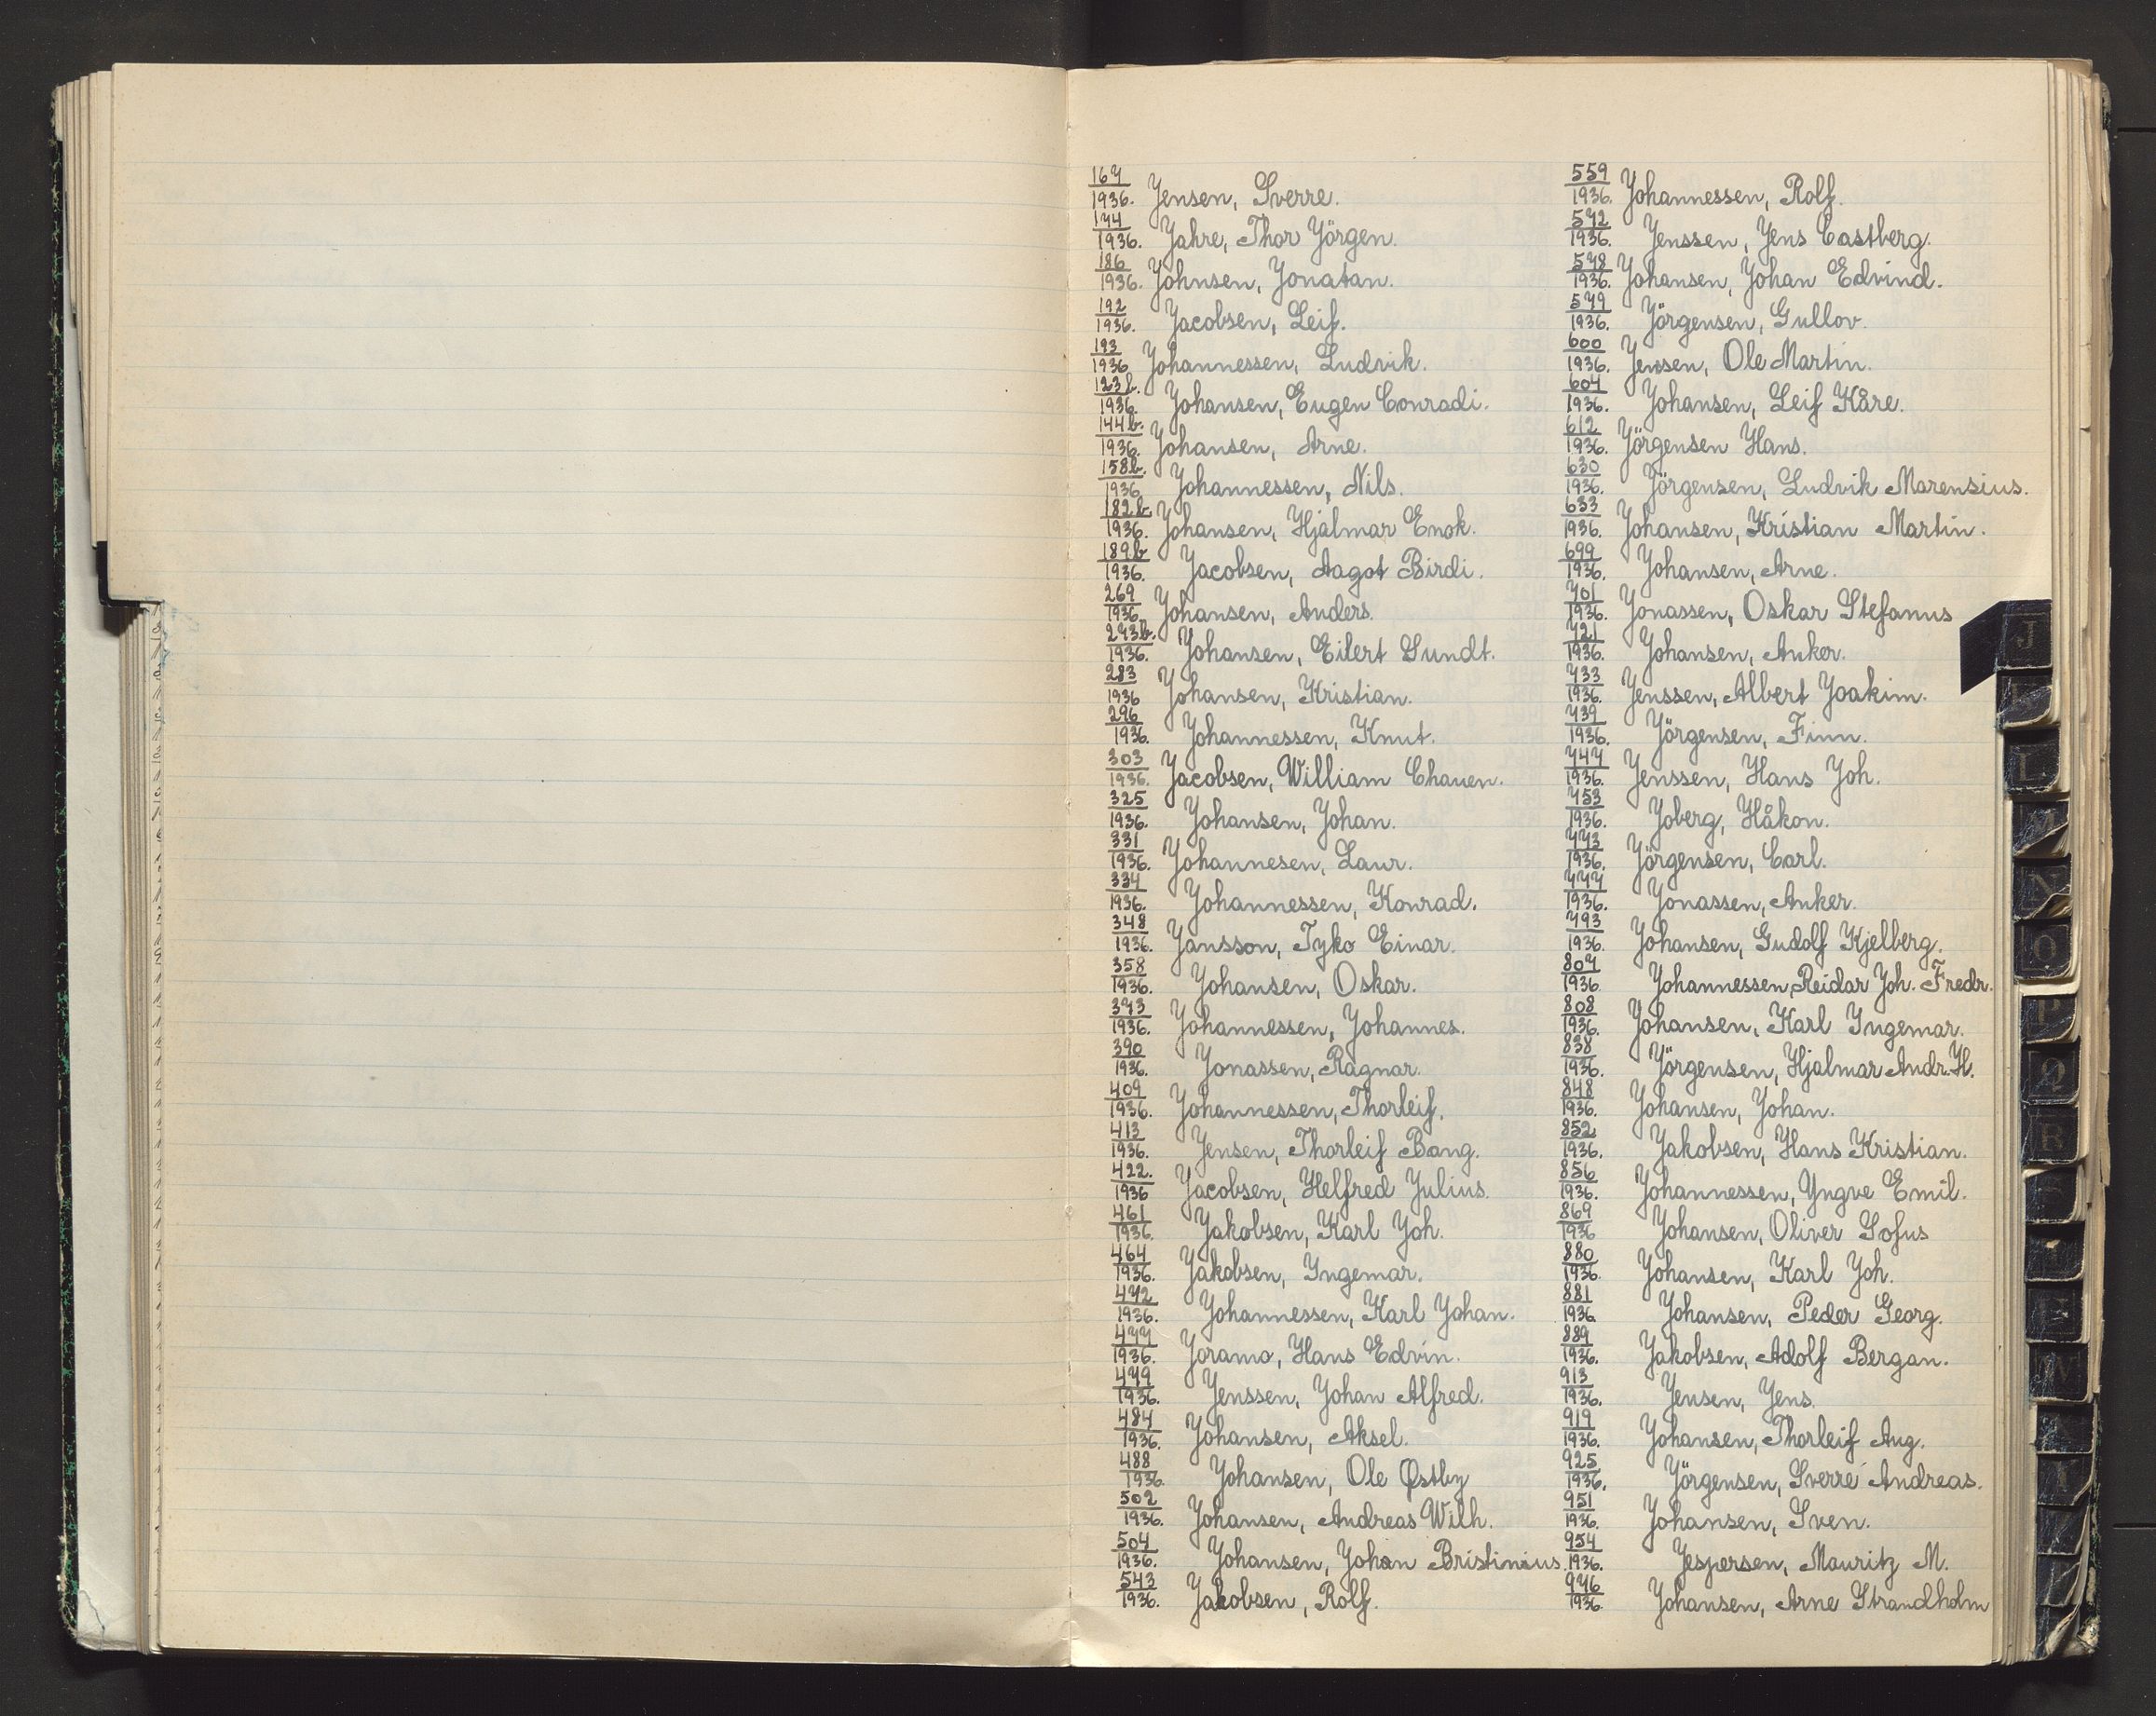 167
1936. Jensen, Sverre.
174
1936. Jahre, Thor Jörgen.
186
1936. Johnsen, Jonatan.
192
1936. Jacobsen, Leif.
193
1936 Johannessen, Ludvik.
123b.
1936. Johansen, Eugen Conradi.
144b.
1936. Johansen, Arne.
158b.
1936 Johannessen, Nils.
182b
1936. Johansen, Hjalmar Enok.
189b
1936. Jacobsen, Aagot Birdi.
269
1936. Johansen, Anders.
273b.
1936. Johansen, Eilert Sundt.
283
1936 Johansen, Kristian.
296
1936. Johannessen, Knut.
303
1936. Jacobsen, William Chauen.
325
1936. Johansen, Johan.
331
1936. Johannesen, Laur.
334
1936. Johannessen, Konrad.
348
1936. Jansson, Tyko Einar.
358
1936. Johansen, Oskar.
373
1936. Johannessen, Johannes.
390
1936. Jonassen, Ragnar.
409
1936. Johannessen, Thorleif.
413
1936. Jensen, Thorleif Bang.
422.
1936 Jacobsen, Helfred Julius.
461
1936. Jakobsen, Karl Joh.
464
1936. Jakobsen, Ingemar.
472
1936. Johannessen, Karl Johan.
477
1936. Joramo, Hans Edvin.
479
1936. Jenssen, Johan Alfred.
484
1936. Johansen, Aksel.
488
1936. Johansen, Ole Østby
502
1936. Johansen, Andreas Wilh.
504
1936. Johansen, Johan Bristinius.
543
1936. Jakobsen, Rolf.
559
1936. Johannessen, Rolf.
572
1936. Jenssen, Jens Castberg.
578
1936. Johansen, Johan Edvind.
579
1936. Jörgensen, Gullov.
600
1936. Jensen, Ole Martin.
604
1936. Johansen, Leif Kåre.
612
1936. Jörgensen Hans.
630
1936. Jörgensen, Ludvik Marensius.
633
1936. Johansen, Kristian Martin.
699
1936. Johansen, Arne.
701
1936. Jonassen, Oskar Stefanus
721
1936. Johansen, Anker.
733
1936. Jenssen, Albert Joakim.
739
1936. Jörgensen, Finn.
747
1936. Jenssen, Hans Joh.
753
1936. Joberg, Håkon.
773
1936. Jörgensen, Carl.
777
1936. Jonassen, Anker.
793
1936. Johansen, Gudolf Kjelberg.
807
1936 Johannessen, Reidar Joh. Fredr.
808
1936. Johansen, Karl Ingemar.
838
1936. Jörgensen, Hjalmar Andr. H.
848
1936. Johansen, Johan.
852
1936. Jakobsen, Hans Kristian.
856
1936. Johannessen, Yngve Emil.
869
1936 Johansen, Oliver Sofus
880
1936. Johansen, Karl Joh.
881
1936 Johansen, Peder Georg.
889
1936. Jakobsen, Adolf Bergan.
913
1936. Jensen, Jens.
919
1936. Johansen, Thorleif Aug.
925
1936. Jörgensen, Sverre Andreas.
951
1936. Johansen, Sven.
954
1936. Jespersen, Mauritz M.
976
1936. Johansen, Arne Strandholm
J
L
N
O
P
Q
R
W